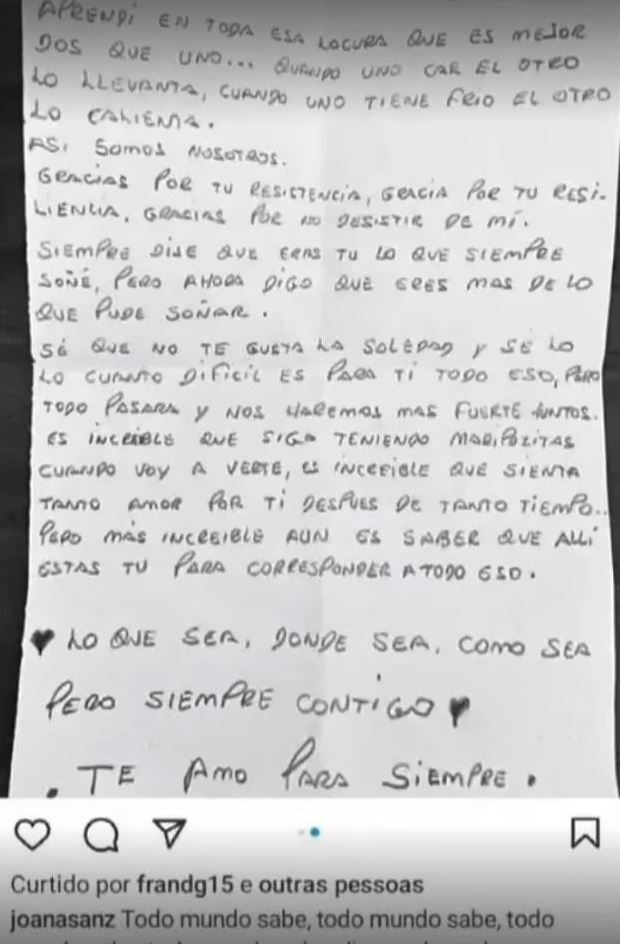 APRENDÍ EN TODA ESA LOCURA QUE ES MEJOR
DOS QUE UNO... QUANDO UNO CAE EL OTRO
LO LLEVANTA, CUANDO UNO TIENE FRIO EL OTRO
LO CALIENTA.
ASI SOMOS NOSOTROS.
GRACIAS POR TU RESISTENCIA, GRACIA POR TU RESI-
LIENCIA, GRACIAS POR NO DESISTIR DE MÍ.
SIEMPRE DIJE QUE ERAS TU LO QUE SIEMPRE
SOÑÉ, PERO AHORA DIGO QUE ERES MAS DE LO
QUE PUDE SOÑAR.
SÉ QUE NO TE GUSTA LA SOLEDAD Y SÉ LO
LO CUANTO DIFICIL ES PARA TI TODO ESO, PERO
TODO PASARA Y NOS HAREMOS MAS FUERTE JUNTOS.
ES INCREIBLE QUE SIGA TENIENDO MARIPOZITAS
CUANDO VOY A VERTE, ES INCREIBLE QUE SIENTA
TANTO AMOR POR TI DESPUES DE TANTO TIEMPO..
PERO MÁS INCREIBLE AUN ES SABER QUE ALLÍ
ESTAS TU PARA CORRESPONDER A TODO ESO.
♥ LO QUE SEA, DONDE SEA, COMO SEA
PERO SIEMPRE CONTIGO ♥
. TE AMO PARA SIEMPRE.
Curtido por frandg15 e outras pessoas
joanasanz Todo mundo sabe, todo mundo sabe, todo